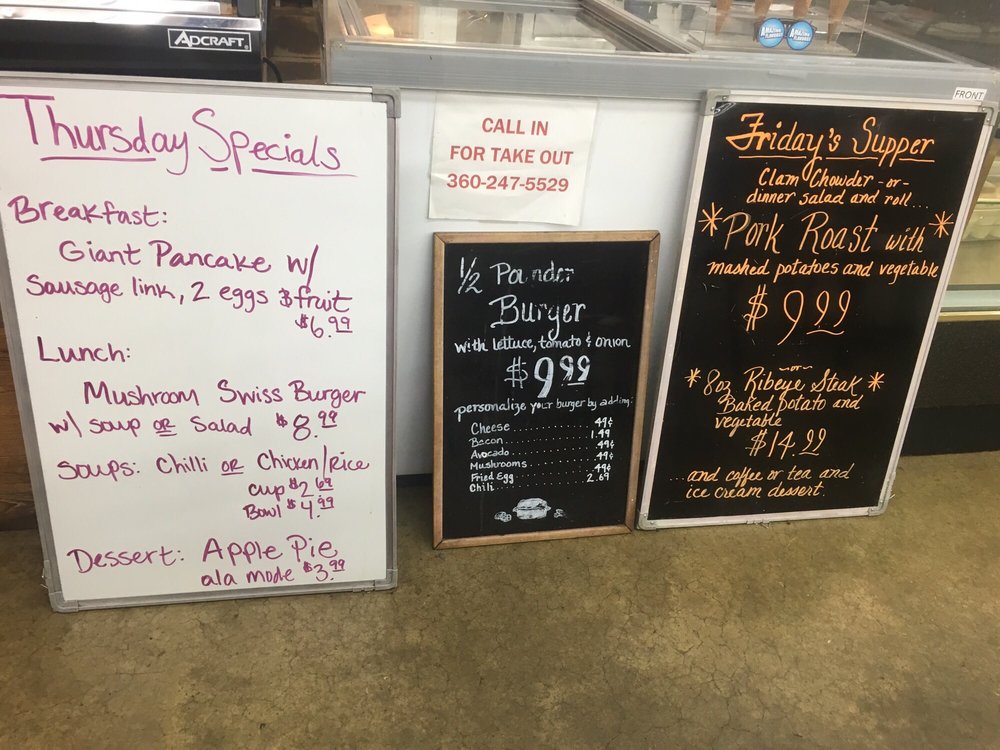 ADCRAFT
Thursday Specials
Breakfast:
Giant Pancake w/
Sausage link, 2 eggs & fruit
$6.99
Lunch:
Mushroom Swiss Burger
w/ soup OR Salad $8.99
Soups: Chilli OR Chicken/Rice
cup $2.69
Bowl $4.99
Dessert: Apple Pie
ala mode $3.99
CALL IN
FOR TAKE OUT
360-247-5529
1/2 Pounder
Burger
with lettuce, tomato & onion
$9.99
personalize your burger by adding:
Cheese .............. .49¢
Bacon .............. 1.49
Avocado .............. .99¢
Mushrooms .............. .49¢
Fried Egg .............. .99¢
Chili .............. 2.69
FRONT
Friday's Supper
Clam Chowder -or-
dinner salad and roll...
*Pork Roast with*
mashed potatoes and vegetable
$9.99
-or-
*8oz Ribeye Steak*
Baked potato and
vegetable
$14.99
...and coffee or tea and
ice cream dessert.